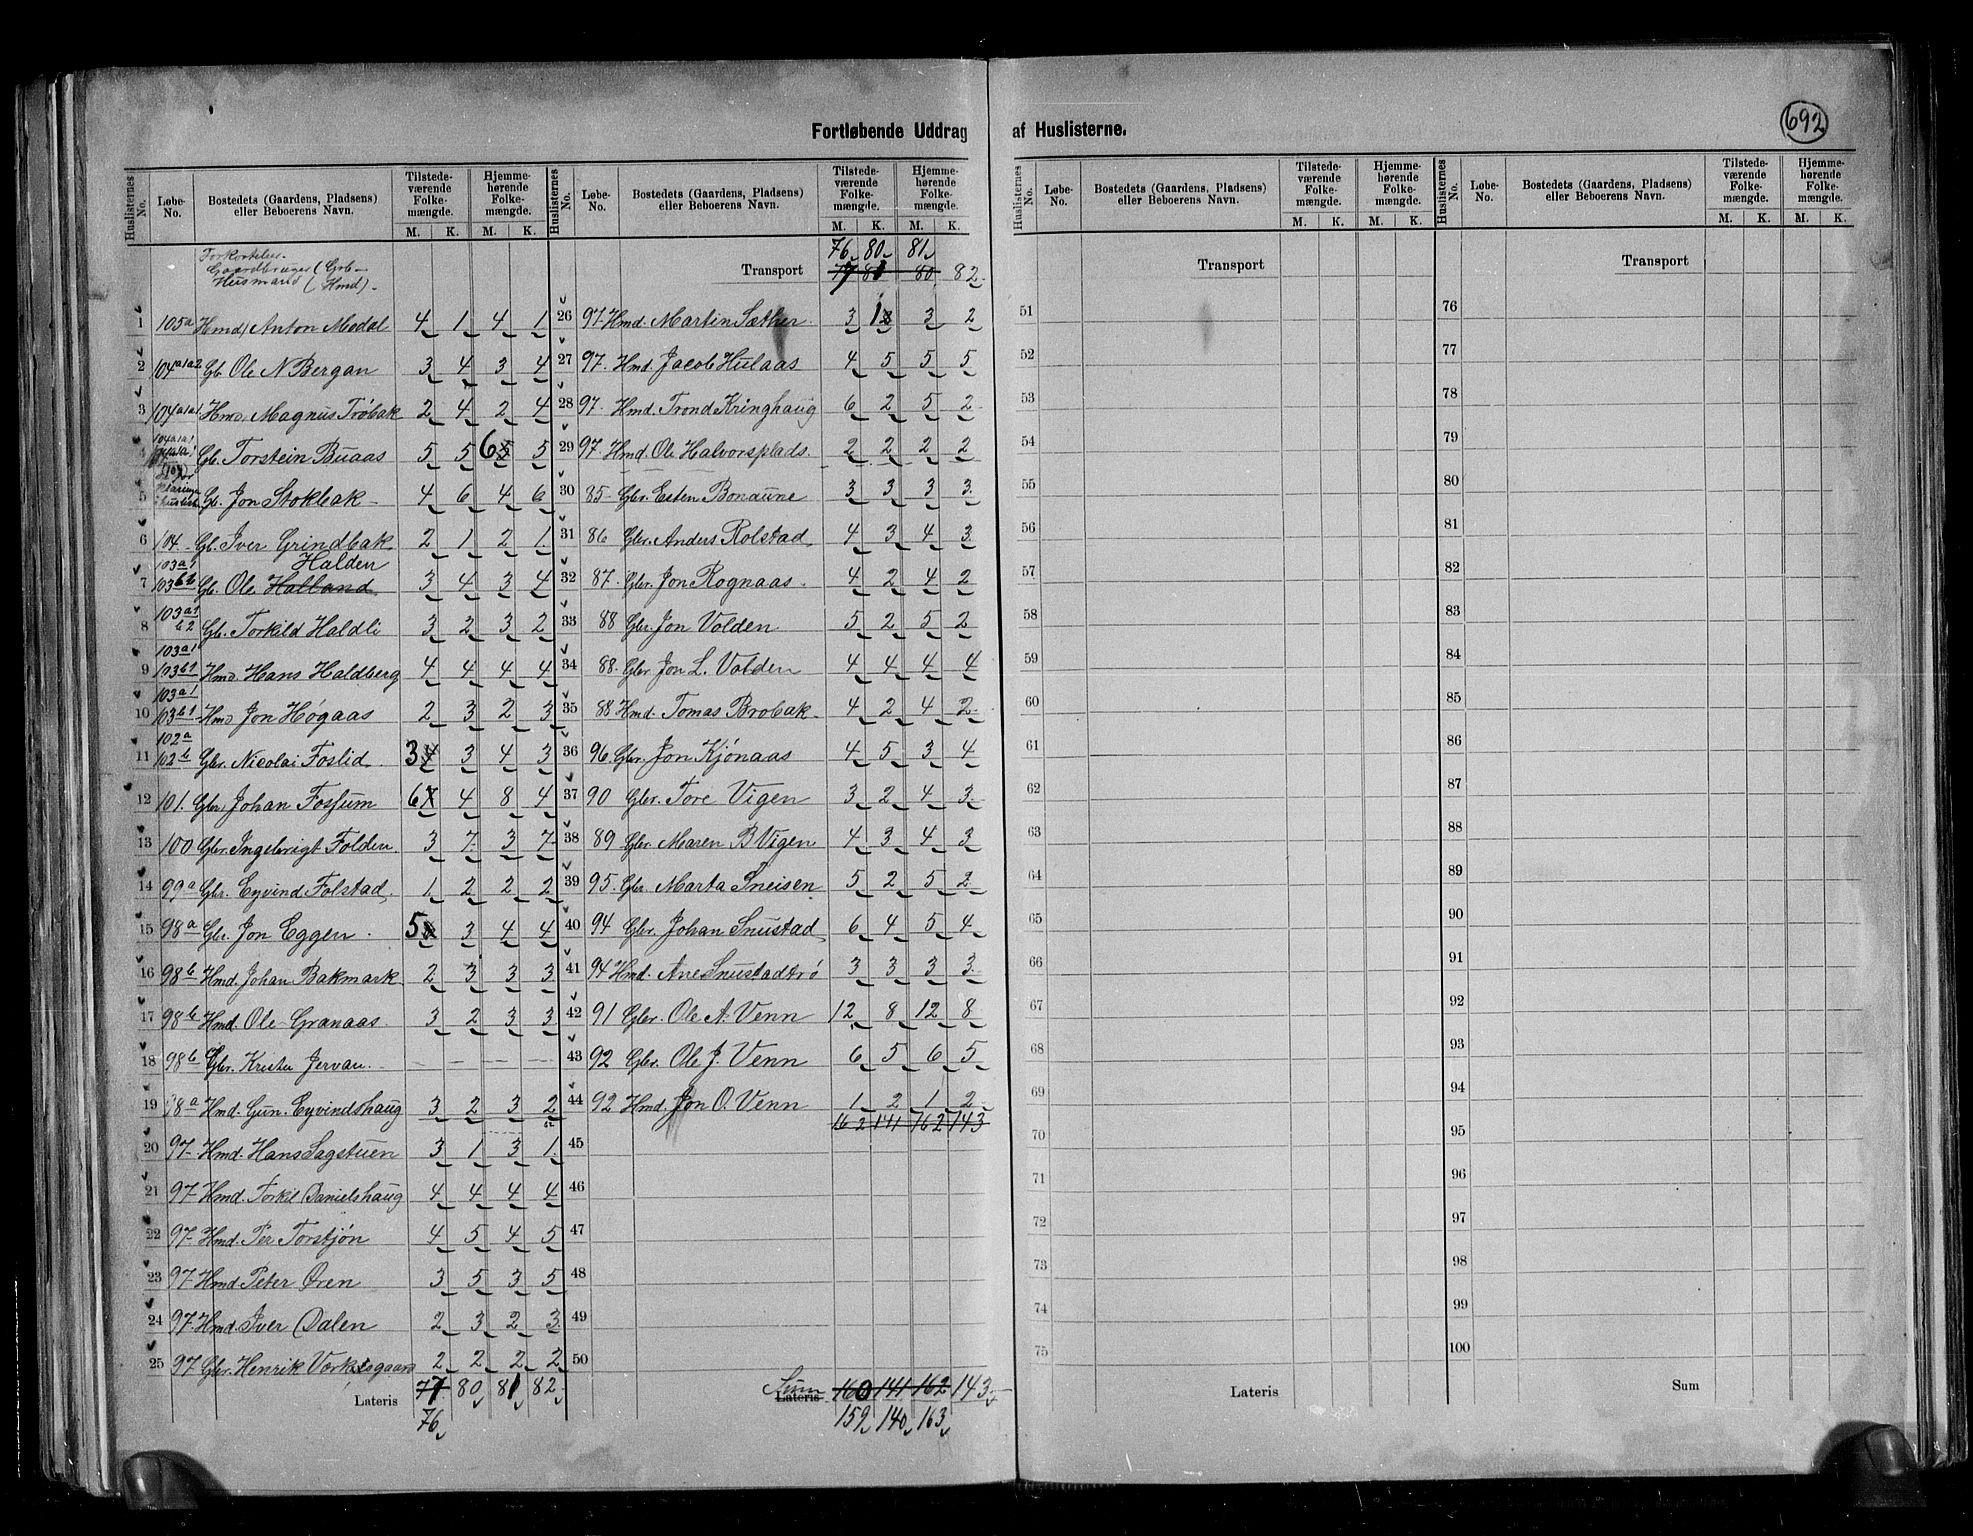 692
Fortløbende Uddrag af Huslisterne.
Huslisternes No. Løbe-No. Bostedets (Gaardens, Pladsens) eller Beboerens Navn. Tilstedeværende Folkemængde. M. K. Hjemmehørende Folkemængde. M. K.
Forkortelser
Gaardbruger (Grb
Husmand (Hmd).
1 105a Hmd Anton Modal 4 1 4 1
2 104a1a2 Gb Ole N Bergan 3 4 3 4
3 104a1a1 Hmd Magnus Trøbak 2 4 2 4
4 104a1a1 Gb. Torstein Buaas 5 5 6 5
5 Gb. Jon Stokbak 4 6 4 6
6 104 Gb. Iver Grindbak 2 1 2 1
Halden
7 103a1 103b2 Gb. Ole Halland 3 4 3 4
8 103a1 b2 Gb. Torkild Haldli 3 2 3 2
9 103a1 103b1 Hmd. Hans Haldberg 4 4 4 4
10 103a1 103b1 Hmd Jon Høgaas 2 3 2 3
11 102a 102b Gbr. Nicolai Foslid 3 3 4 3
12 101. Gbr. Johan Fossum 6 4 8 4
13 100 Gbr. Ingebrigt Folden 3 7 3 7
14 99a Gbr. Eyvind Folstad 1 2 2 2
15 98a Gbr. Jon Eggen 5 3 4 4
16 98b Hmd. Johan Bakmark 2 3 3 3
17 98b Hmd. Ole Granaas 3 2 3 3
18 98b Gbr. Krister Jervan. – – – –
19 98a Hmd. Gun. Eyvindshaug 3 2 3 2
20 97 Hmd. Hans Sagstuen 3 1 3 1
21 97 Hmd. Torkil Danielshaug 4 4 4 4
22 97 Hmd. Per Torstjøn 4 5 4 5
23 97 Hmd. Peter Øren 3 5 3 5
24 97 Hmd. Iver Dalen 2 3 2 3
25 97 Gbr. Henrik 2 2 2 2
Lateris 77 80 81 82
76
Huslisternes No. Løbe-No. Bostedets (Gaardens, Pladsens) eller Beboerens Navn. Tilstedeværende Folkemængde. M. K. Hjemmehørende Folkemængde. M. K.
76 80 81
Transport 77 81 80 82
26 97 Hmd. Martin Sæther 3 1 3 2
27 97. Hmd. Jacob Hulaas 4 5 5 5
28 97. Hmd. Trond Kringhaug 6 2 5 2
29 97. Hmd. Ole Halvorsplads 2 2 2 2
30 85 Gbr. Esten Bonaune 3 3 3 3
31 86 Gbr. Anders Rolstad 4 3 4 3
32 87. Gbr. Jon Rognaas 4 2 4 2
33 88 Gbr. Jon Volden 5 2 5 2
34 88. Gbr Jon L. Volden 4 4 4 4
35 88 Hmd. Tomas Brobak 4 2 4 2
36 96. Gbr. Jon Kjønaas 4 5 3 4
37 90 Gbr. Tore Vigen 3 2 4 3
38 89 Gbr. Maren B Vigen 4 3 4 3
39 95. Gbr. Marta Sneisen 5 2 5 2
40 94 Gbr. Johan Snustad 6 4 5 4
41 94 Hmd. Ane Snustadtrø 3 3 3 3
42 91 Gbr. Ole A. Venn 12 8 12 8
43 92 Gbr. Ole J. Venn 6 5 6 5
44 92 Hmd. Jon O. Venn 1 2 1 2
162 141 162 143
45
46
47
48
49
50
Sum Lateris 160 141 162 143
159 140 163
Huslisternes No. Løbe-No. Bostedets (Gaardens, Pladsens) eller Beboerens Navn. Tilstedeværende Folkemængde. M. K. Hjemmehørende Folkemængde. M. K.
Transport
51
52
53
54
55
56
57
58
59
60
61
62
63
64
65
66
67
68
69
70
71
72
73
74
75
Lateris
Huslisternes No. Løbe-No. Bostedets (Gaardens, Pladsens) eller Beboerens Navn. Tilstedeværende Folkemængde. M. K. Hjemmehørende Folkemængde. M. K.
Transport
76
77
78
79
80
81
82
83
84
85
86
87
88
89
90
91
92
93
94
95
96
97
98
99
100
Sum